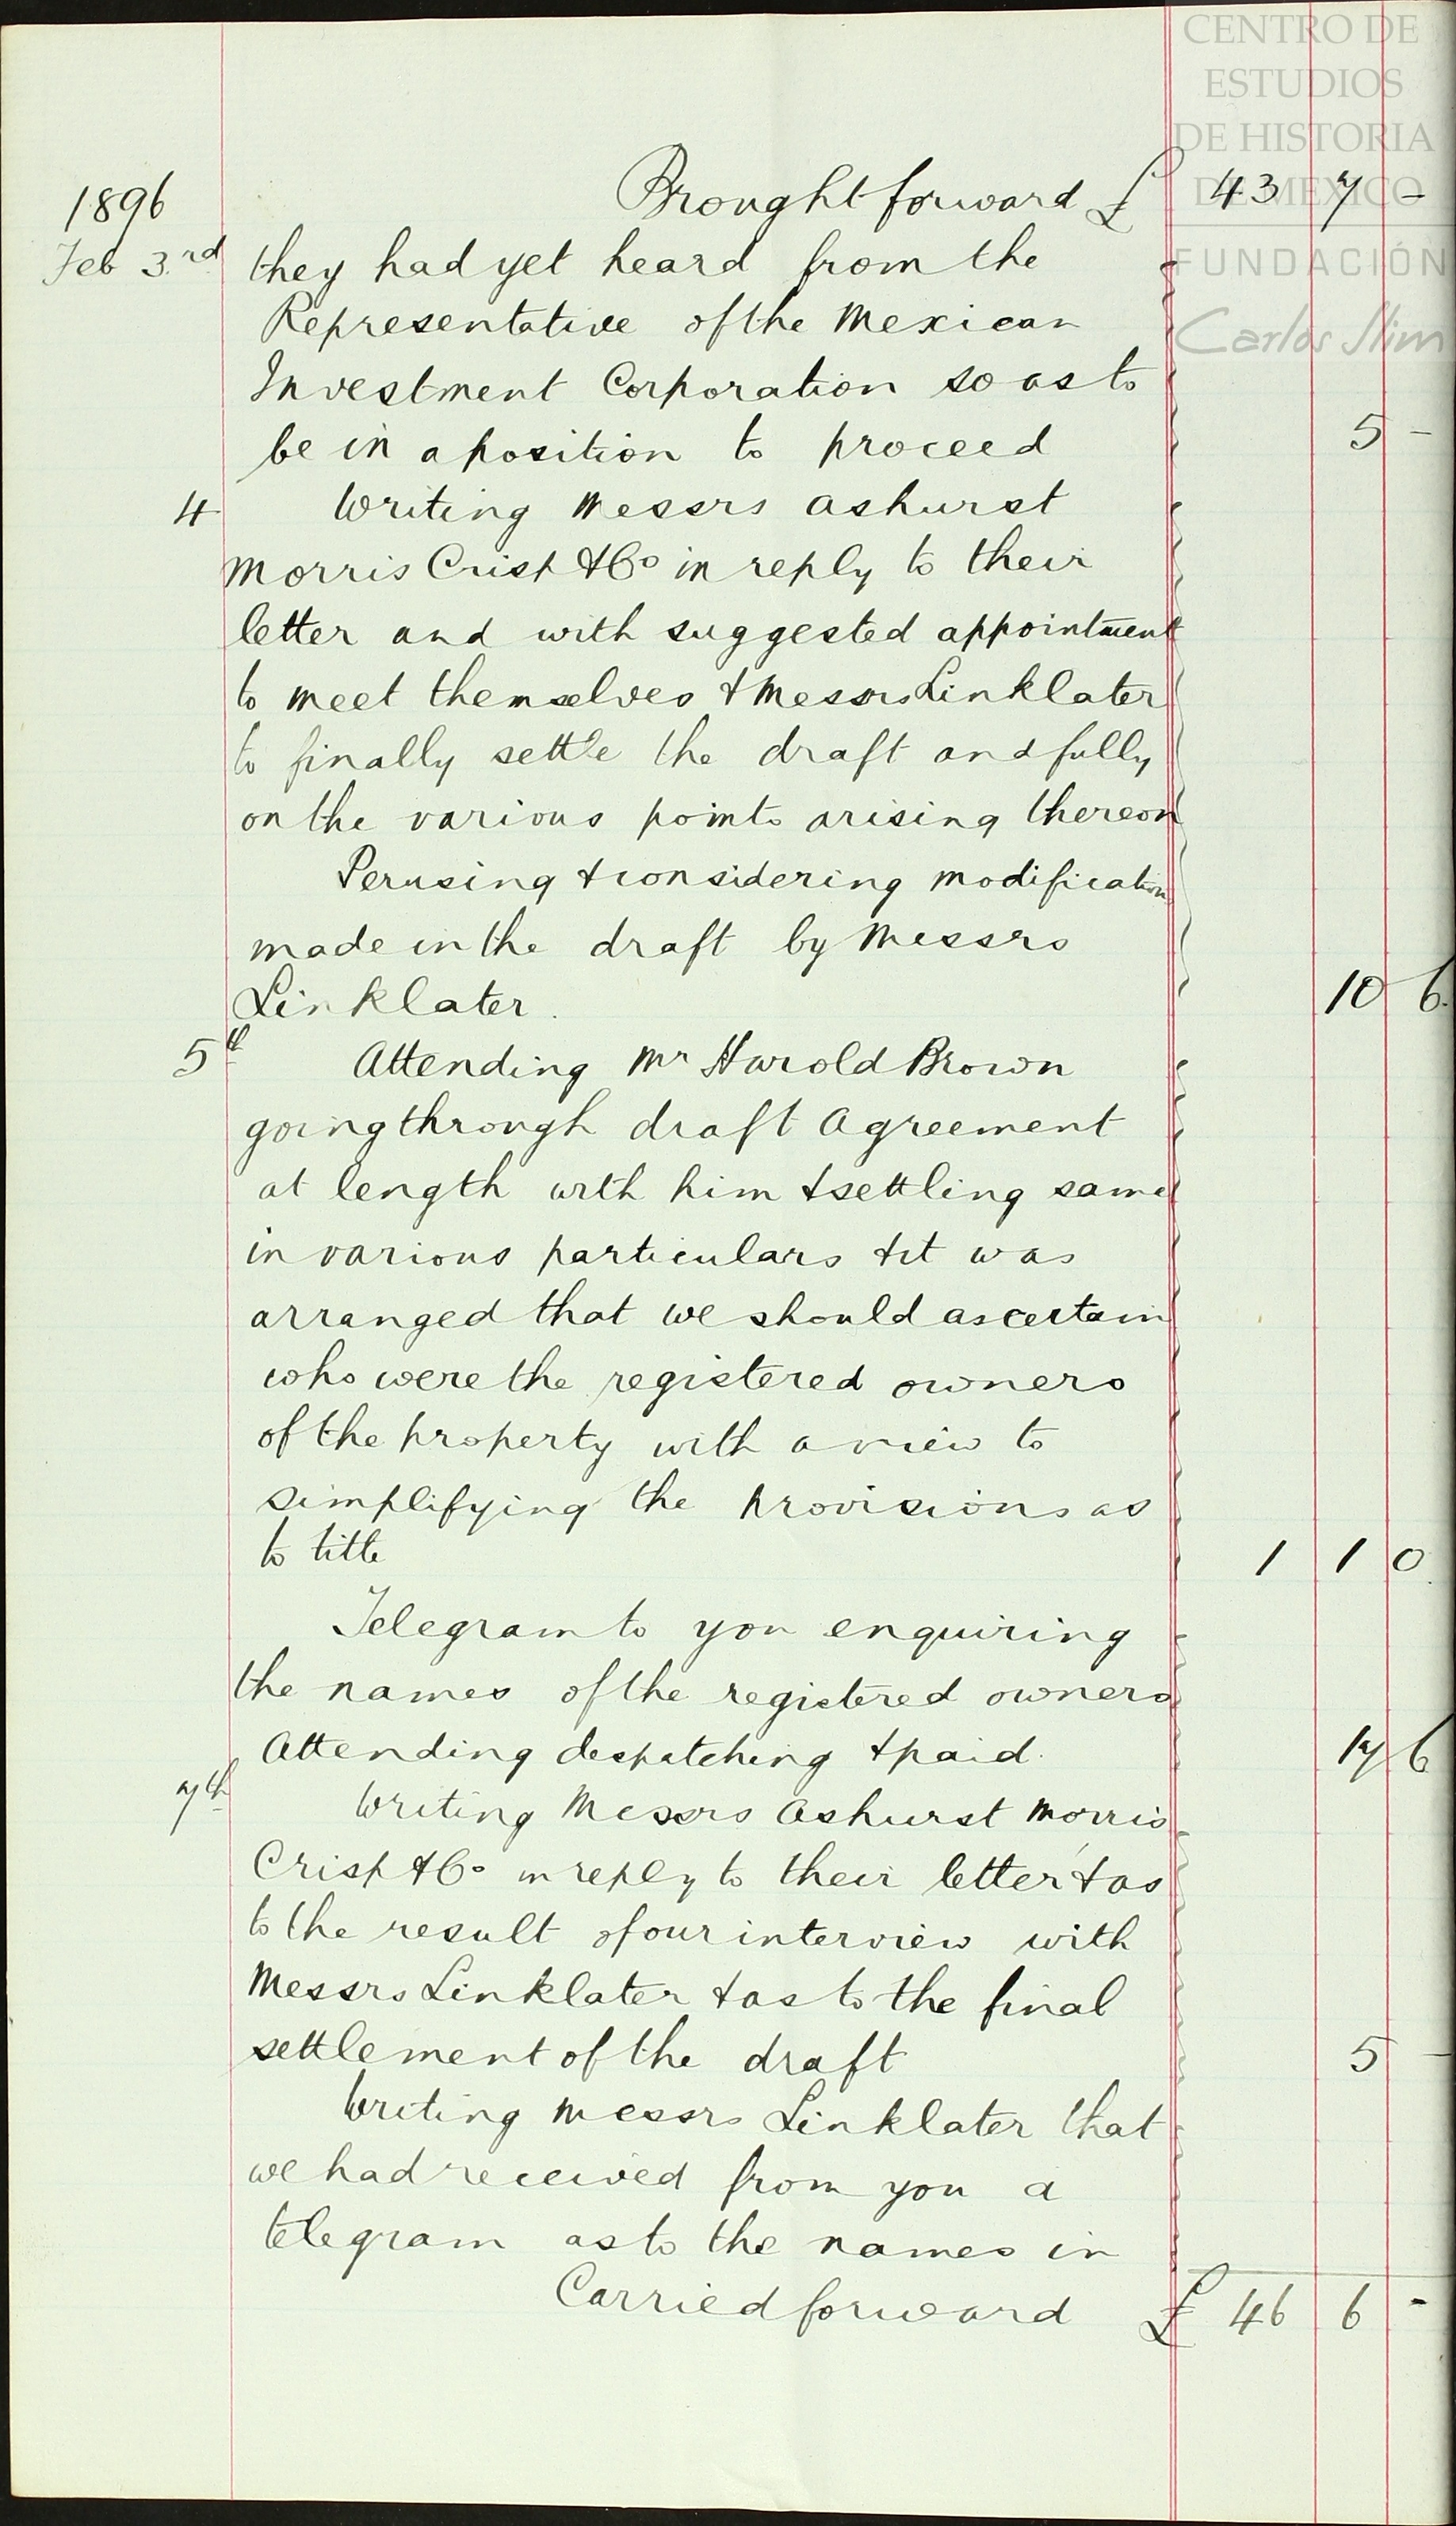 CENTRO DE
ESTUDIOS
DE HISTORIA
DE MEXICO
FUNDACIÓN
Carlos Slim
1896 Brought forward £ 43 7 -
Feb 3rd they had yet heard from the
Representative of the Mexican
Investment Corporation so as to
be in a position to proceed 5 -
4 Writing Messrs Ashurst
Morris Crisp & Co in reply to their
letter and with suggested appointment
to meet themselves & Messrs Linklater
to finally settle the draft and fully
on the various points arising thereon
Perusing & considering modification
made in the draft by Messrs
Linklater. 10 6
5th Attending Mr Harold Brown
going through draft Agreement
at length with him & settling same
in various particulars & it was
arranged that we should ascertain
who were the registered owners
of the property with a view to
simplifying the provisions as
to title 1 1 0
Telegram to you enquiring
the names of the registered owners
Attending despatching & paid. 17 6
7th Writing Messrs Ashurst Morris
Crisp & Co in reply to their letter & as
to the result of our interview with
Messrs Linklater & as to the final
settlement of the draft 5 -
Writing Messrs Linklater that
we had received from you a
telegram as to the names in
Carried forward £ 46 6 -